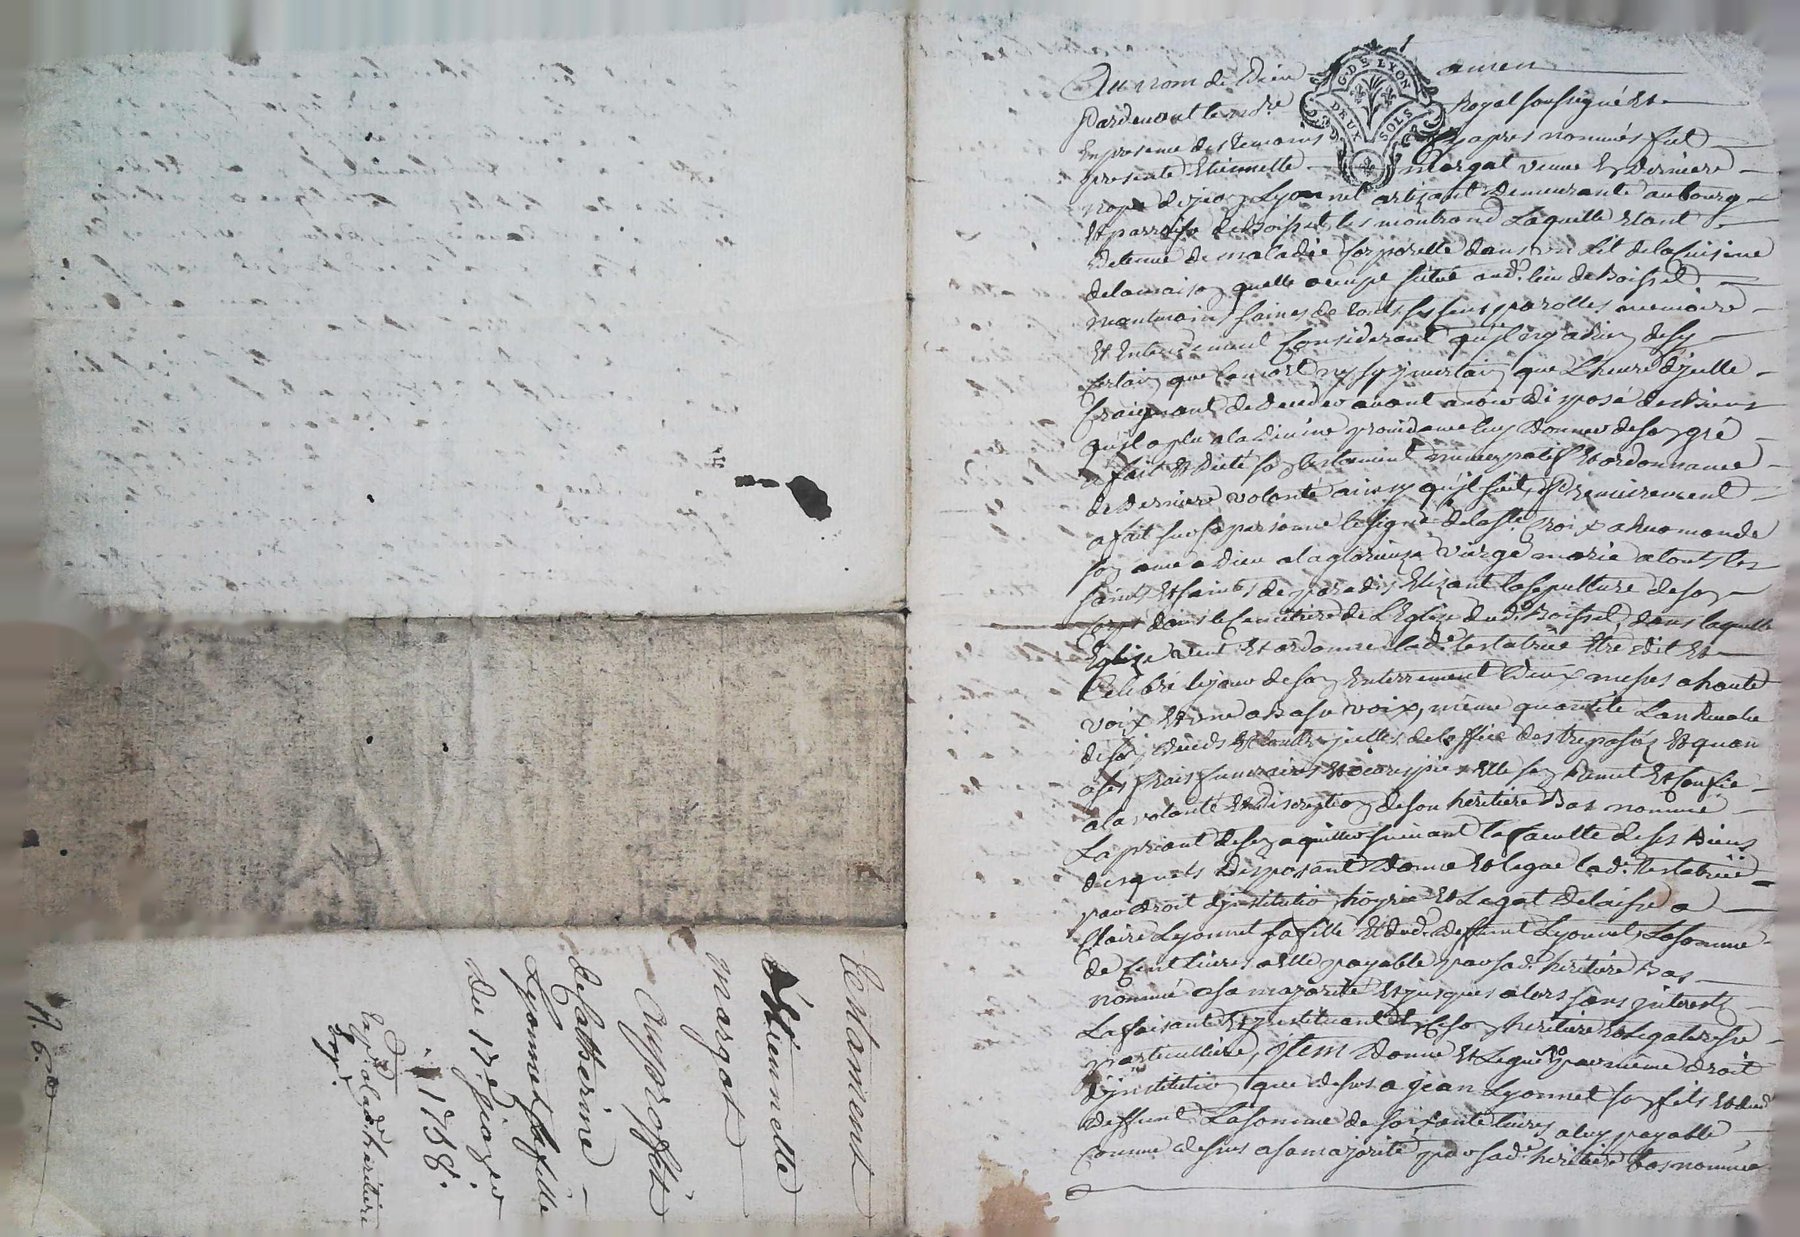 Testament
d'Etiennette
margot
Au proffit
de Catherine
Lyonnet sa fille
Du 17e janvier
1758.
Expé.
N. 6.
G. DE LYON
DEUX SOLS
Au nom de Dieu amen
Pardevant le nore Royal soussigné et
en presence des temoins cy apres nommés fut
presente Etiennette Margat veuve en derniere
nopce de jean Lyonnet artisant demeurante au bourg
et parroisse de Boisset les montrond Laquelle etant
detenue de maladie corporelle dans un lit de la cuisine
de la maison quelle occupe située aud. lieu de Boisset
montrond saines de touts ses sens parolles memoire
et entendement Considerant qu'il n'y a rien de sy
certain que la mort ny sy jncertain que L'heure d'jcelle
craignant de deceder avant avoir disposé des biens
qu'il a plu a la Divine providance luy donner de son gré
a fait et dicté son testament nuncupatif et ordonnance
de derniere volonté ainsy qu'il suit, Premierement
a fait sur sa personne le signe de la ste Croix a recomandé
son ame a Dieu a la glorieuse Vierge marie a touts les
saints et saintes de paradis Elizant la sepulture de son
corps dans le Cimetiere de L'Eglize dud. Boisset, dans laquelle
Eglize veut et ordonne lad. testatrice etre dit et
celebré le jour de son Enterrement Deux messes a haute
voix et une a basse voix, même quantité L'an revolu
de son deceds et outre jcelles de loffice des trepassés et quan
a ses frais funeraires et œuvres pies elle s'en remet et confie
a la volonté et discretion de son heritiere bas nommé
La priant de s'en aquitter suivant la faculté de ses Biens
desquels disposant donne et legue lad. testatrice
par droit d'jnstitution hoyrie et Legat delaisse a
Claire Lyonnet sa fille et dud. deffunt Lyonnet, La somme
de Cent livres a elle payable par sad. heritiere bas
nommé a sa majorité et jusques alors sans jnterests
La faisante et jnstituant de ce son heritiere et legateresse
particulliere, Jtem Donne et Legue par même droit
d'jnstitution que dessus a jean Lyonnet son fils et dud.
deffunt La somme de soixante livres a luy payable
comme dessus a sa majorité par sad. heritiere bas nommée